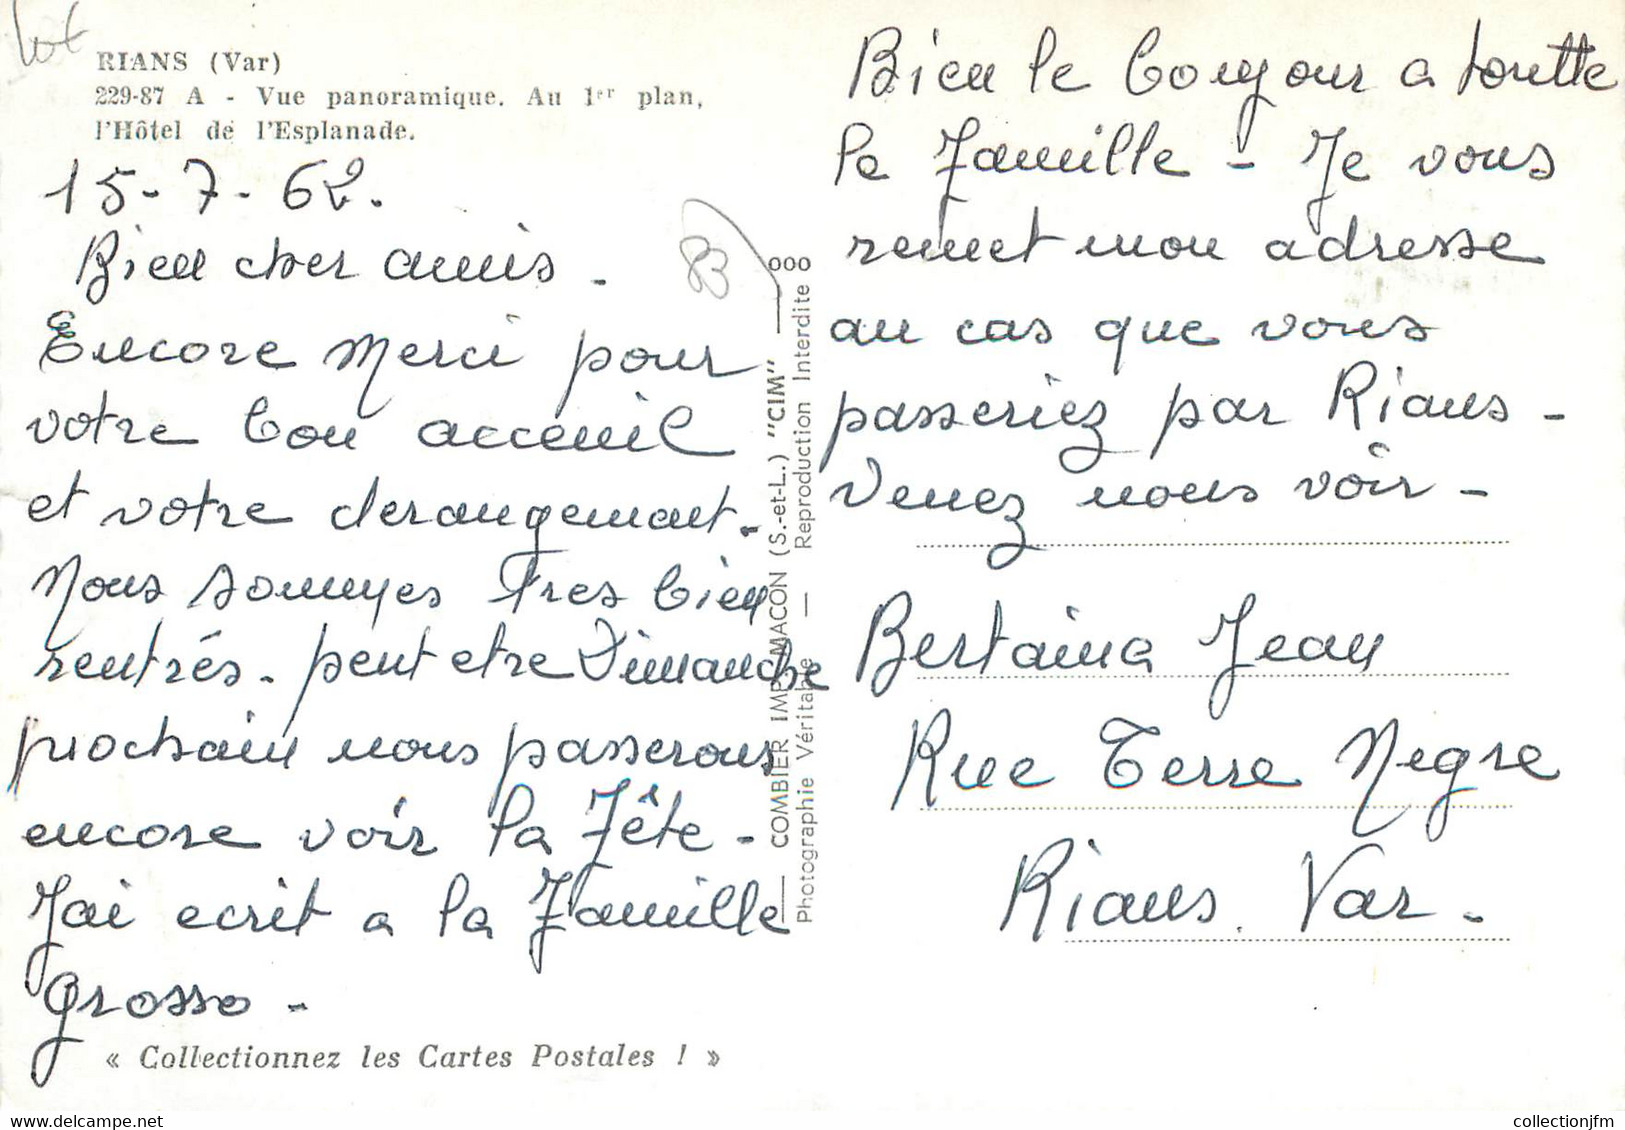 lot
RIANS (Var)
229-87 A - Vue panoramique. Au 1er plan,
l'Hôtel de l'Esplanade.
15-7-62.
Bien cher amis.
Encore Merci pour
votre bon acceuil
et votre derangemant.
Nous sommes tres bien
rentrés. peut etre Dimanche
prochain nous passerons
encore voir la Fête -
Jai ecrit a la Famille
Grosso -
« Collectionnez les Cartes Postales ! »
83
COMBIER IMP. MACON (S.-et-L.) "CIM" ooo
Photographie Véritable — Reproduction Interdite
Bien le bonjour a toutte
la Famille - Je vous
remet mon adresse
au cas que vous
passeriez par Rians -
Venez nous voir -
Bertaina Jean
Rue Terre Negre
Rians. Var -
collectionjfm